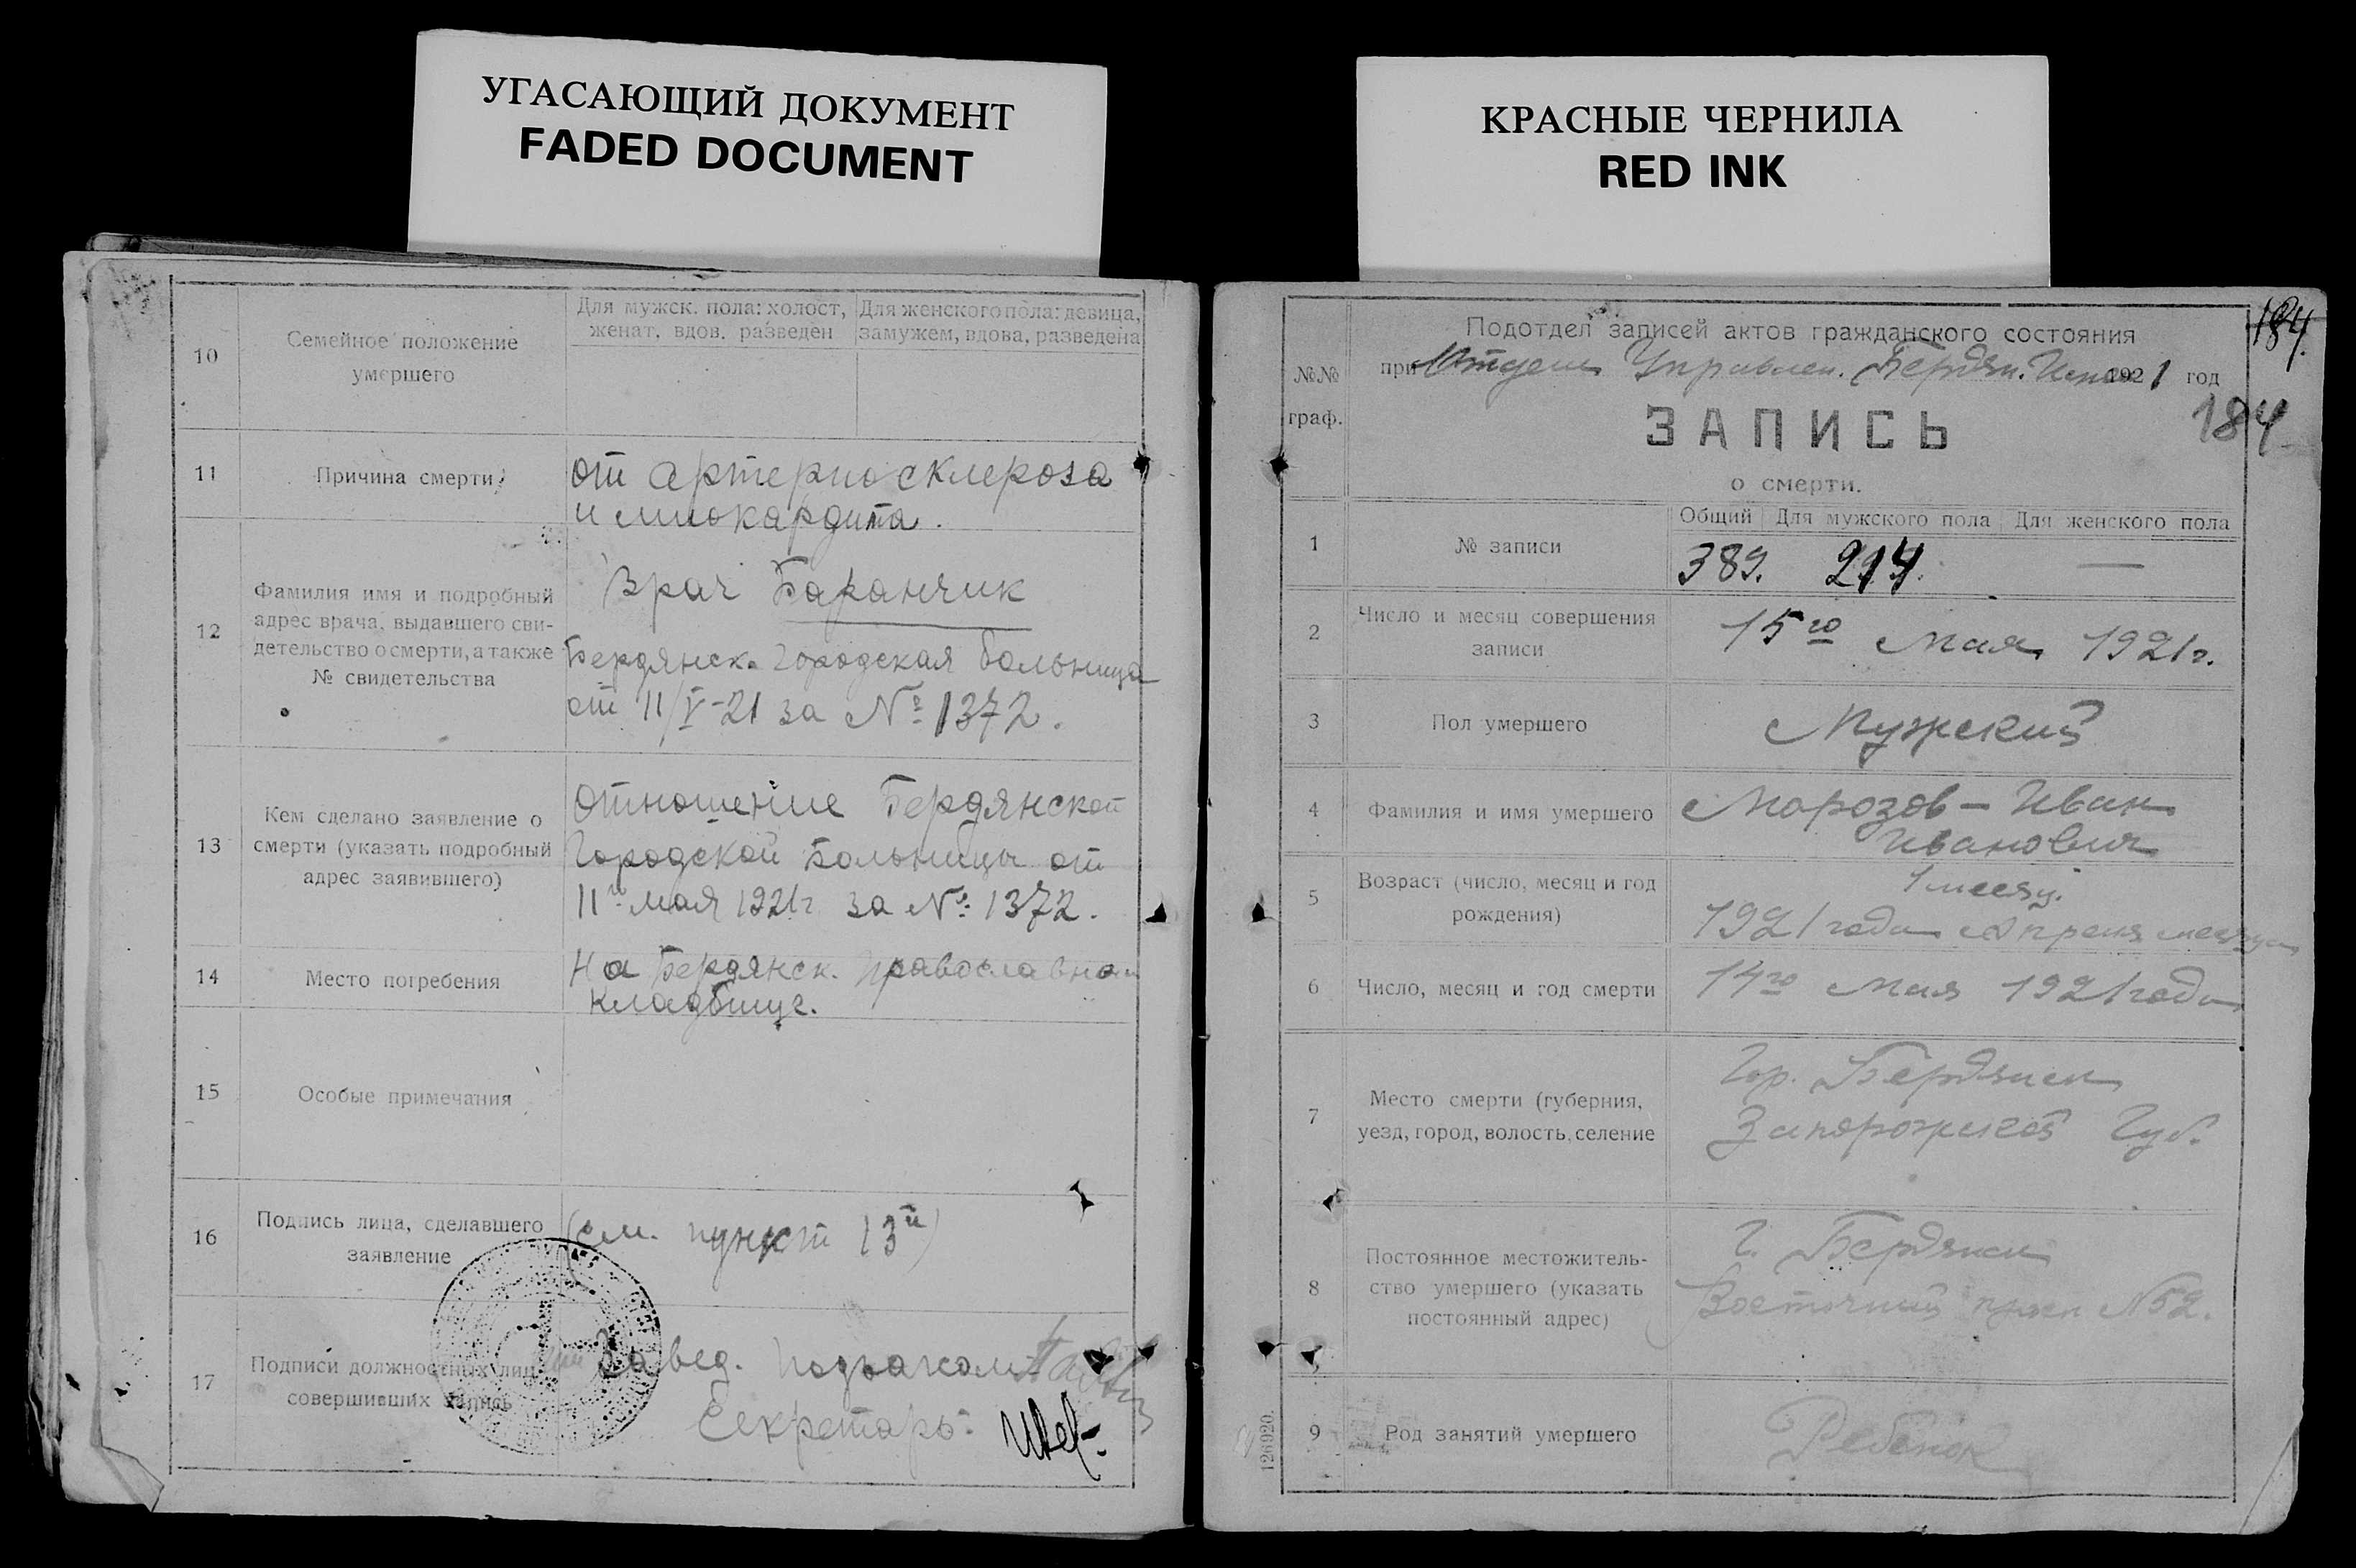 УГАСАЮЩИЙ ДОКУМЕНТ
FADED DOCUMENT
КРАСНЫЕ ЧЕРНИЛА
RED INK
10
Семейное положение
умершего
Для мужск. пола: холост,
женат, вдов, разведен
Для женского пола: девица,
замужем, вдова, разведена
11
Причина смерти
от артериосклероза
и миокардита.
12
Фамилия имя и подробный
адрес врача, выдавшего сви-
детельство о смерти, а также
№ свидетельства
Врач Баранчик
Бердянск. Городская больница
от 11/V-21 за № 1372.
13
Кем сделано заявление о
смерти (указать подробный
адрес заявившего)
Отношение Бердянской
Городской Больницы от
11го мая 1921г за № 1372.
14
Место погребения
На Бердянск. православном
кладбище.
15
Особые примечания
16
Подпись лица, сделавшего
заявление
(см. пункт 13й)
17
Подписи должностных лиц
совершивших запись
Завед.
Секретарь:
184
№№
граф.
Подотдел записей актов гражданского состояния
при Отделе Управлен. Бердян. 1921 год
184
ЗАПИСЬ
о смерти.
1
№ записи
Общий
Для мужского пола
Для женского пола
389. 214. —
2
Число и месяц совершения
записи
15го Мая 1921г.
3
Пол умершего
Мужский
4
Фамилия и имя умершего
Морозов — Иван
Иванович
5
Возраст (число, месяц и год
рождения)
1 месяц.
1921 года Апреля месяца
6
Число, месяц и год смерти
14го Мая 1921 года
7
Место смерти (губерния,
уезд, город, волость, селение
Гор. Бердянск
Запорожской Губ.
8
Постоянное местожитель-
ство умершего (указать
постоянный адрес)
Г. Бердянск
Восточный просп №52.
9
Род занятий умершего
Ребенок
126920.